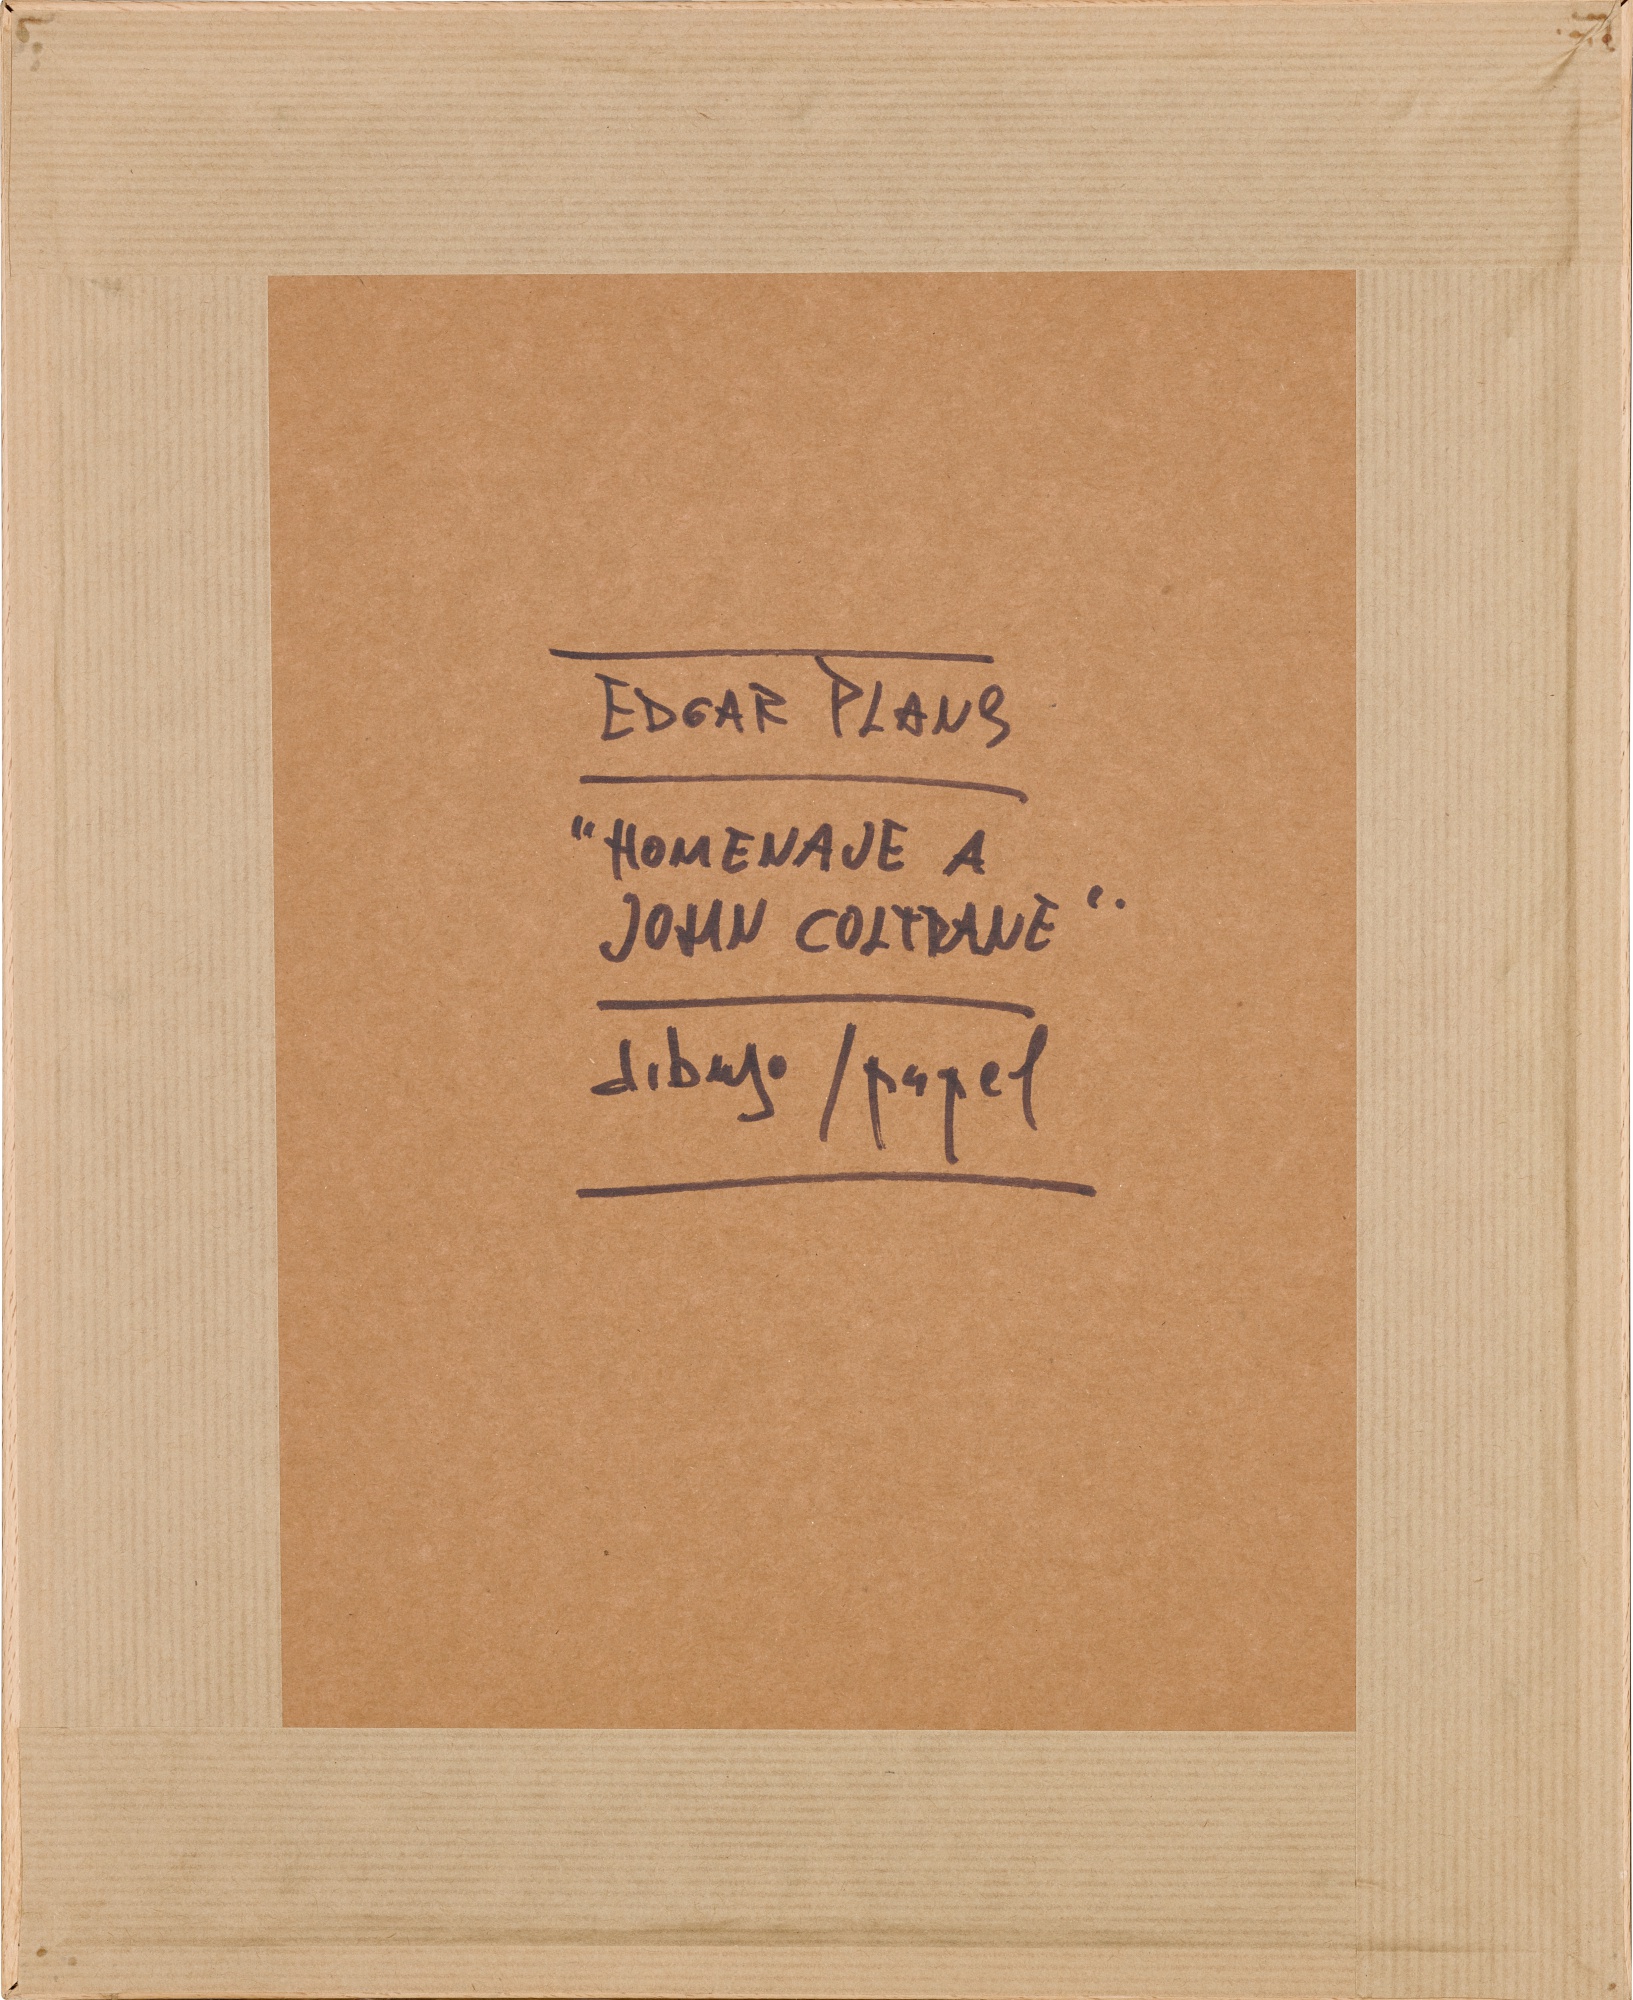 EDGAR PLANS
"HOMENAJE A
JOHN COLTRANE".
dibujo / papel